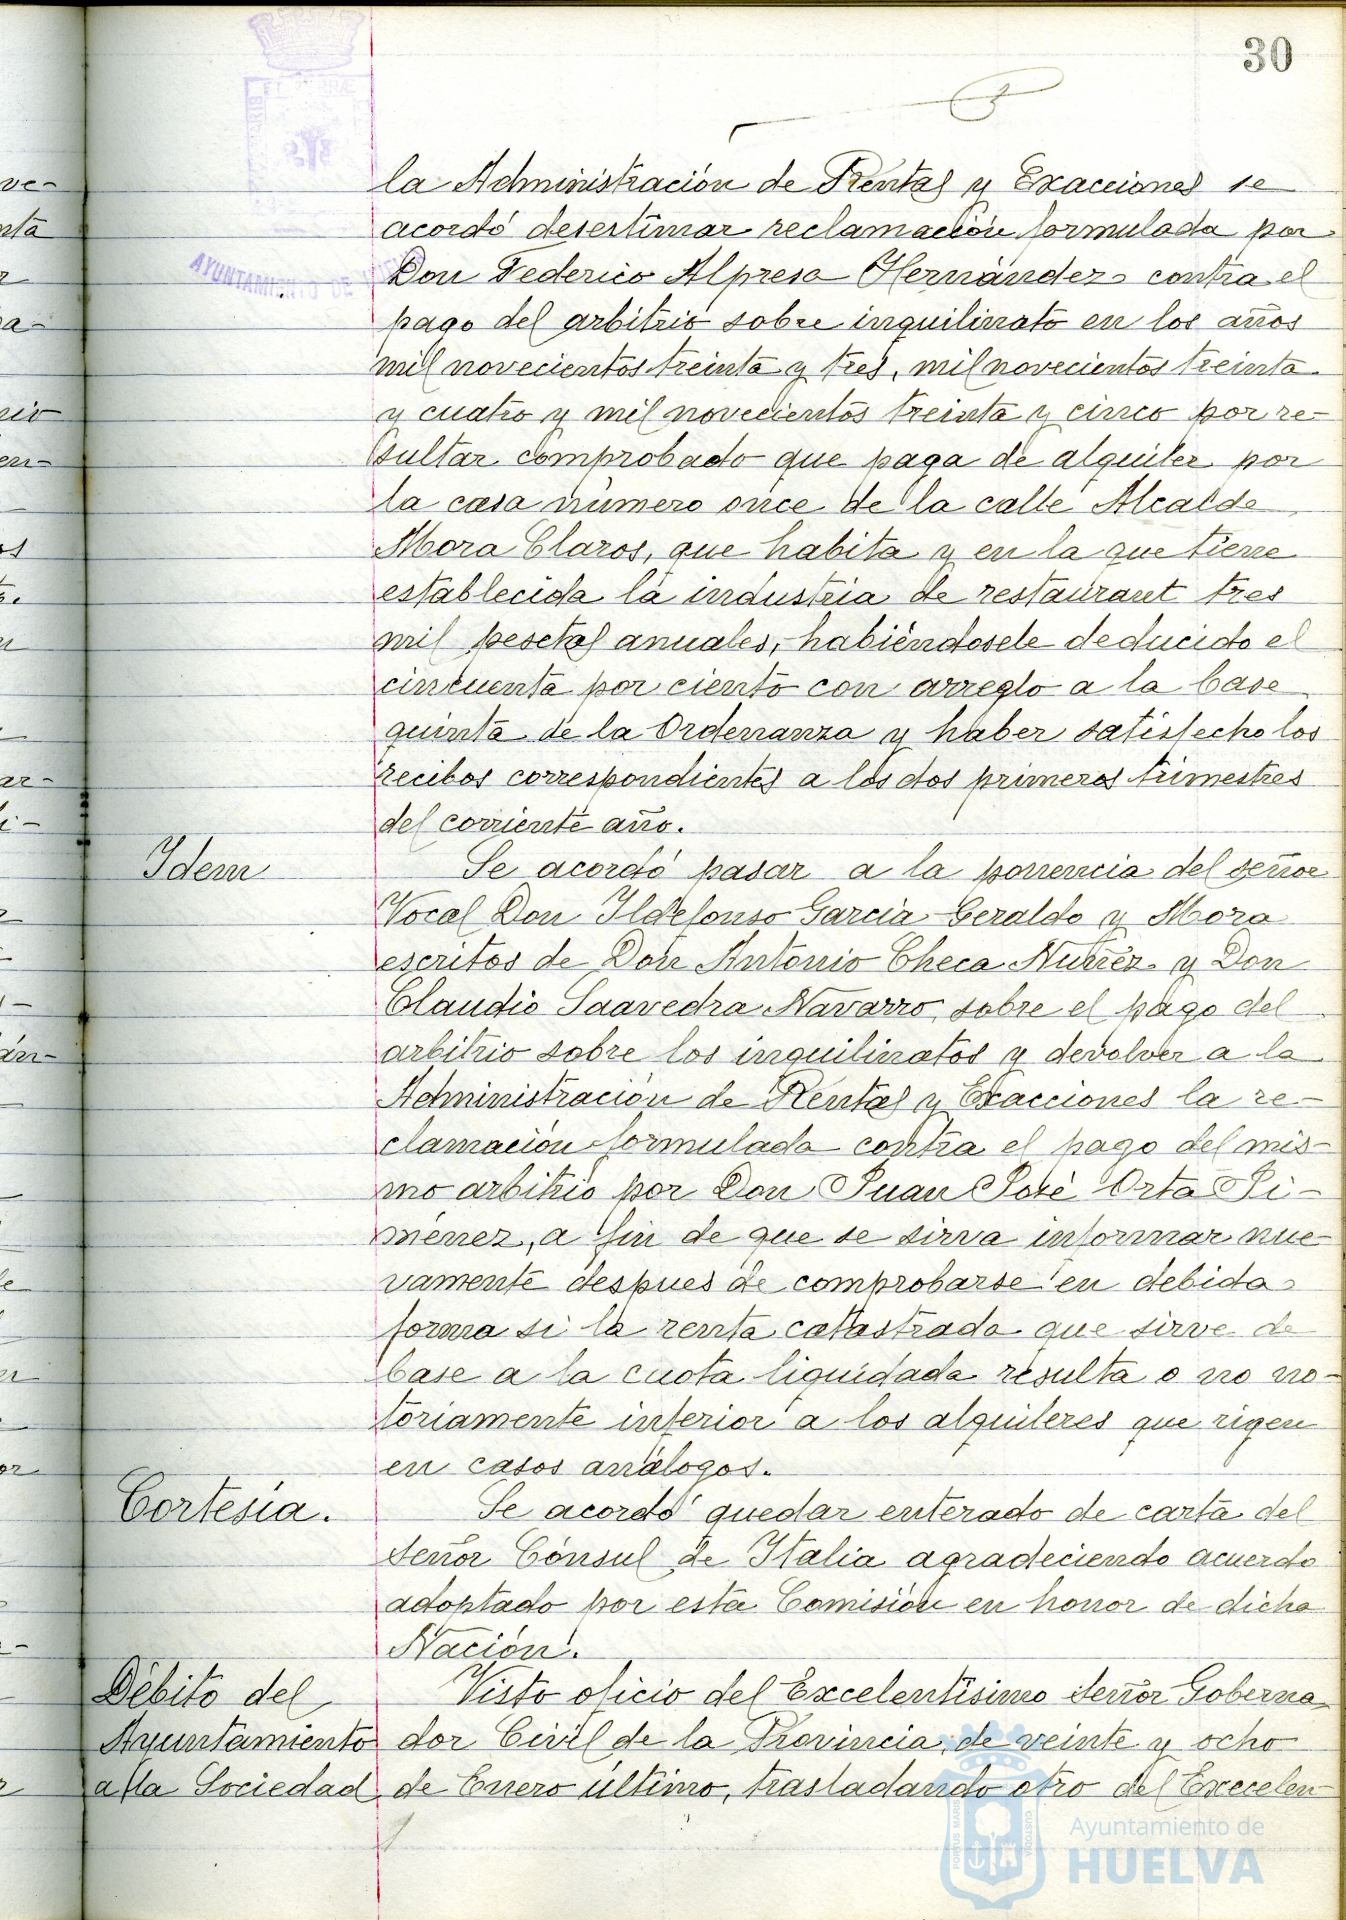 30
AYUNTAMIENTO DE
la Administración de Rentas y Exacciones se
acordó desestimar reclamación formulada por
Don Federico Alpresa Hernández contra el
pago del arbitrio sobre inquilinato en los años
mil novecientos treinta y tres, mil novecientos treinta
y cuatro y mil novecientos treinta y cinco por re-
sultar comprobado que paga de alquiler por
la casa número once de la calle Alcalde
Mora Claros, que habita y en la que tiene
establecida la industria de restaurant tres
mil pesetas anuales, habiéndosele deducido el
cincuenta por ciento con arreglo a la base
quinta de la Ordenanza y haber satisfecho los
recibos correspondientes a los dos primeros trimestres
del corriente año.
Idem
Se acordó pasar a la ponencia del señor
Vocal Don Ildefonso Garcia Geraldo y Mora
escritos de Don Antonio Checa Nuñez y Don
Claudio Saavedra Navarro, sobre el pago del
arbitrio sobre los inquilinatos y devolver a la
Administración de Rentas y Exacciones la re-
clamación formulada contra el pago del mis-
mo arbitrio por Don Juan José Orta Ji-
ménez, a fin de que se sirva informar nue-
vamente despues de comprobarse en debida
forma si la renta catastrada que sirve de
base a la cuota liquidada resulta o no no-
toriamente inferior a los alquileres que rigen
en casos análogos.
Cortesía.
Se acordó quedar enterado de carta del
señor Cónsul de Italia agradeciendo acuerdo
adoptado por esta Comisión en honor de dicha
Nación.
Débito del
Ayuntamiento
a la Sociedad
Visto oficio del Excelentísimo señor Goberna-
dor Civil de la Provincia, de veinte y ocho
de Enero último, trasladando otro del Excelen-
PORTUS MARIS
CUSTODIA
Ayuntamiento de
HUELVA